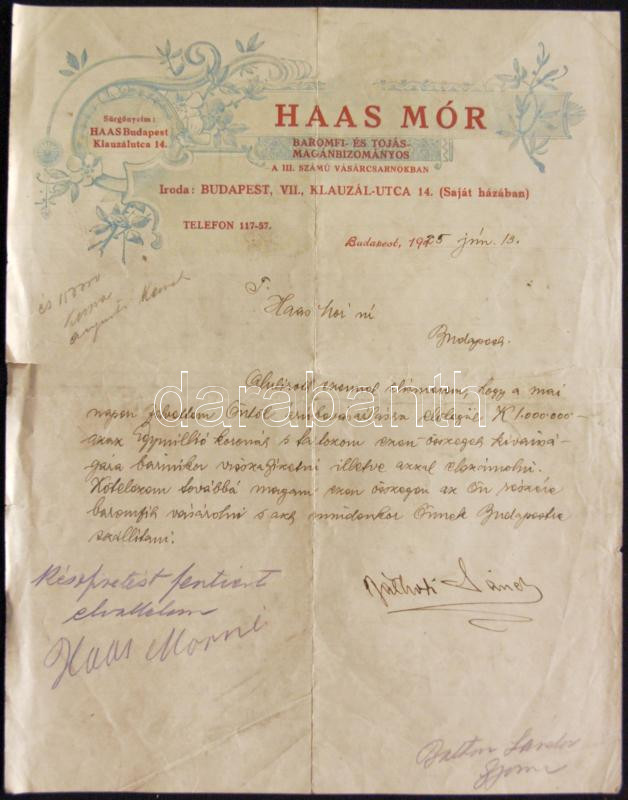 Sürgönycim:
HAAS Budapest
Klauzálutca 14.
HAAS MÓR
BAROMFI- ÉS TOJÁS-
MAGÁNBIZOMÁNYOS
A III. SZÁMÚ VÁSÁRCSARNOKBAN
Iroda: BUDAPEST, VII., KLAUZÁL-UTCA 14. (Saját házában)
TELEFON 117-57.
Budapest, 1925 jún. 13.
T.
Haas
Budapest.
Alulírott ezennel elismerem, hogy a mai
napon felvettem Öntől áruvásárlásra előlegül K 1.000.000-
azaz Egymillió koronát s tartozom ezen összeget kivánsá-
gára bármikor visszafizetni illetve azzal elszámolni.
Kötelezem továbbá magam ezen összegen az Ön részére
baromfit vásárolni s azt mindenkor Önnek Budapestre
szállítani.
darabanth
Készfizetést fentiért
elvállalom
Haas Morné
Sándor
Sándor